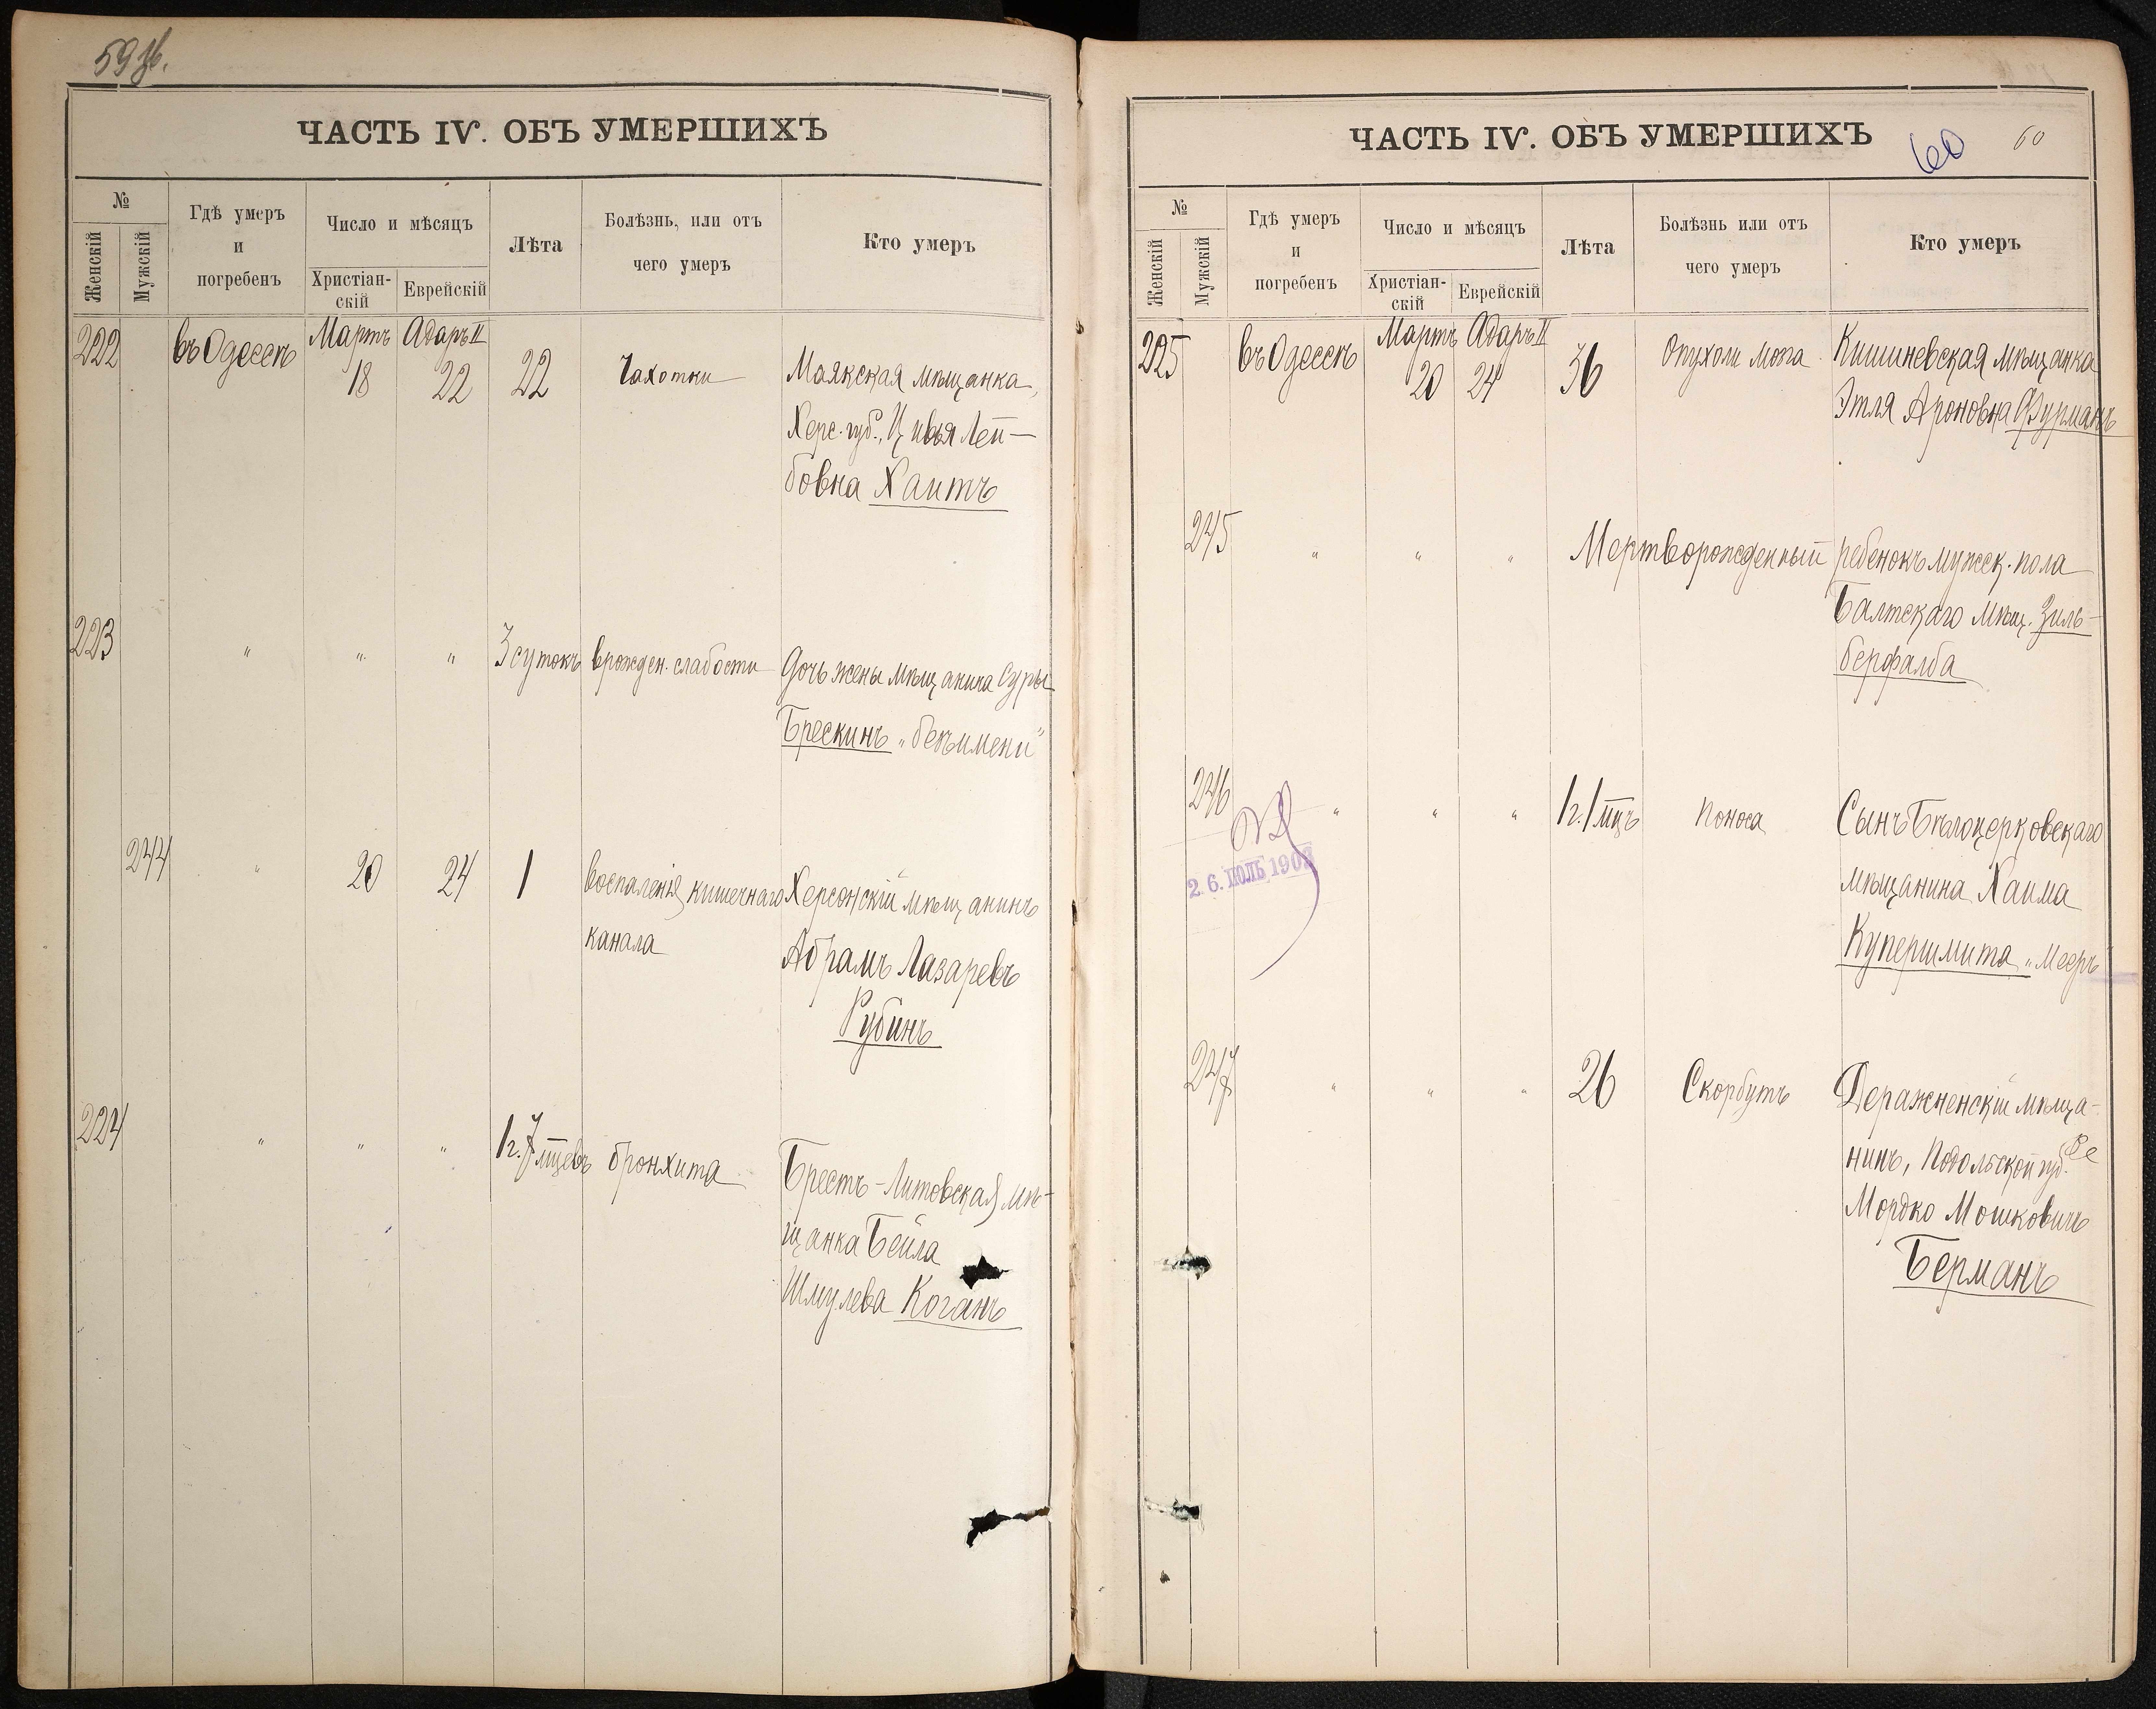 59 об.
ЧАСТЬ IV. ОБЪ УМЕРШИХЪ
№
Женскій
Мужскій
Гдѣ умеръ
и
погребенъ
Число и мѣсяцъ
Христіан-
скій
Еврейскій
Лѣта
Болѣзнь, или отъ
чего умеръ
Кто умеръ
222 въ Одессѣ Мартъ Адаръ II
18 22 22 Чахотки Маякская мѣщанка,
Херс. губ., Цивья Лей-
бовна Хаитъ
223 " " " 3 сутокъ врожден. слабости Дочь жены мѣщанина Суры
Брескинъ „безъимени"
244 " 20 24 1 Воспаленія кишечнаго Херсонскій мѣщанинъ
канала Абрамъ Лазаревъ
Рубинъ
224 " " " 1 г. 7 мцевъ бронхита Брестъ-Литовская мѣ-
щанка Бейла
Шмулева Коганъ
ЧАСТЬ IV. ОБЪ УМЕРШИХЪ
60 60
№
Женскій
Мужскій
Гдѣ умеръ
и
погребенъ
Число и мѣсяцъ
Христіан-
скій
Еврейскій
Лѣта
Болѣзнь или отъ
чего умеръ
Кто умеръ
225 въ Одессѣ Мартъ Адаръ II
20 24 36 Опухоли мозга Кишиневская мѣщанка
Этля Ароновна Фурманъ
245 " " " Мертворожденный ребенокъ мужеск. пола
Балтскаго мѣщ. Зиль-
берфалба
246 " " " 1 г. 1 мцъ Поноса Сынъ Бѣлоцерковскаго
2.6. ІЮЛЬ 190
мѣщанина Хаима
Купершмита „Мееръ"
247 " " " 26 Скорбутъ Деражненскій мѣща-
нинъ, Подольской губ.
Мордко Мошковичъ
Берманъ